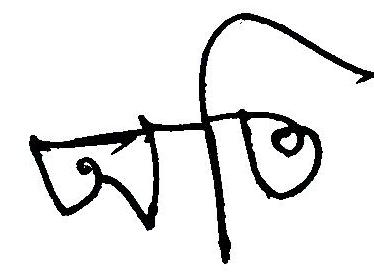 অতি